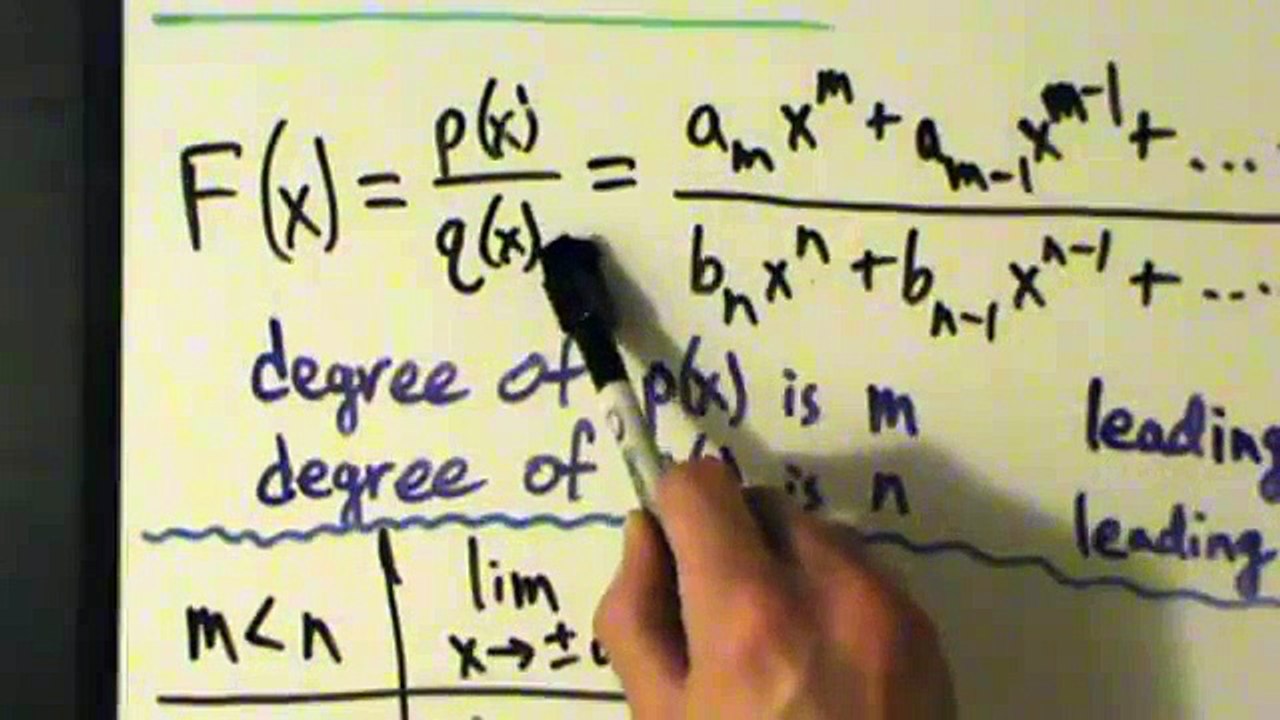 F(x) = p(x) / q(x) = a_m x^m + a_{m-1} x^{m-1} + ... / b_n x^n + b_{n-1} x^{n-1} + ...
degree of p(x) is m leading
degree of is n leading
m < n lim x→±